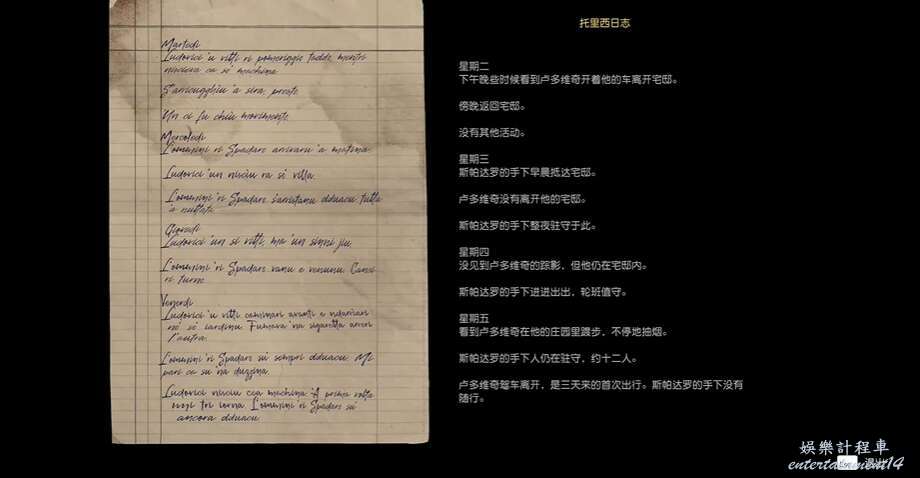 托里西日志
Martedì
Ludovici 'u vitti ri pomeriggio taddi, mentri
nisciva ca so' machina.
S'arricugghiu 'a sira, presto.
Un ci fu chiù movimento.
Mercoledì
L'omini ri Spadaro arrivaru 'a matina.
Ludovici 'un nisciu ra so' villa.
L'omini ri Spadaro s'arristaru dduacu tutta
'a nuttata.
Giovedì
Ludovici 'un si vitti, ma 'un sinni jiu.
L'omini ri Spadaro vanu e venunu.
ri turno.
Venerdì
Ludovici u vitti caminari avanti e
nò so' iardinu. Fumava 'na sigaretta
l'autra.
L'omini ri Spadaro su sempri dduacu. Mi
pari ca su na duzzina.
Ludovici nisciu cca machina. A prima vota
tri iorna. L'omini ri Spadaro su
ancora dduacu.
星期二
下午晚些时候看到卢多维奇开着他的车离开宅邸。
傍晚返回宅邸。
没有其他活动。
星期三
斯帕达罗的手下早晨抵达宅邸。
卢多维奇没有离开他的宅邸。
斯帕达罗的手下整夜驻守于此。
星期四
没见到卢多维奇的踪影，但他仍在宅邸内。
斯帕达罗的手下进进出出，轮班值守。
星期五
看到卢多维奇在他的庄园里踱步，不停地抽烟。
斯帕达罗的手下人仍在驻守，约十二人。
卢多维奇驾车离开，是三天来的首次出行。斯帕达罗的手下没有
随行。
娛樂計程車
entertainment14